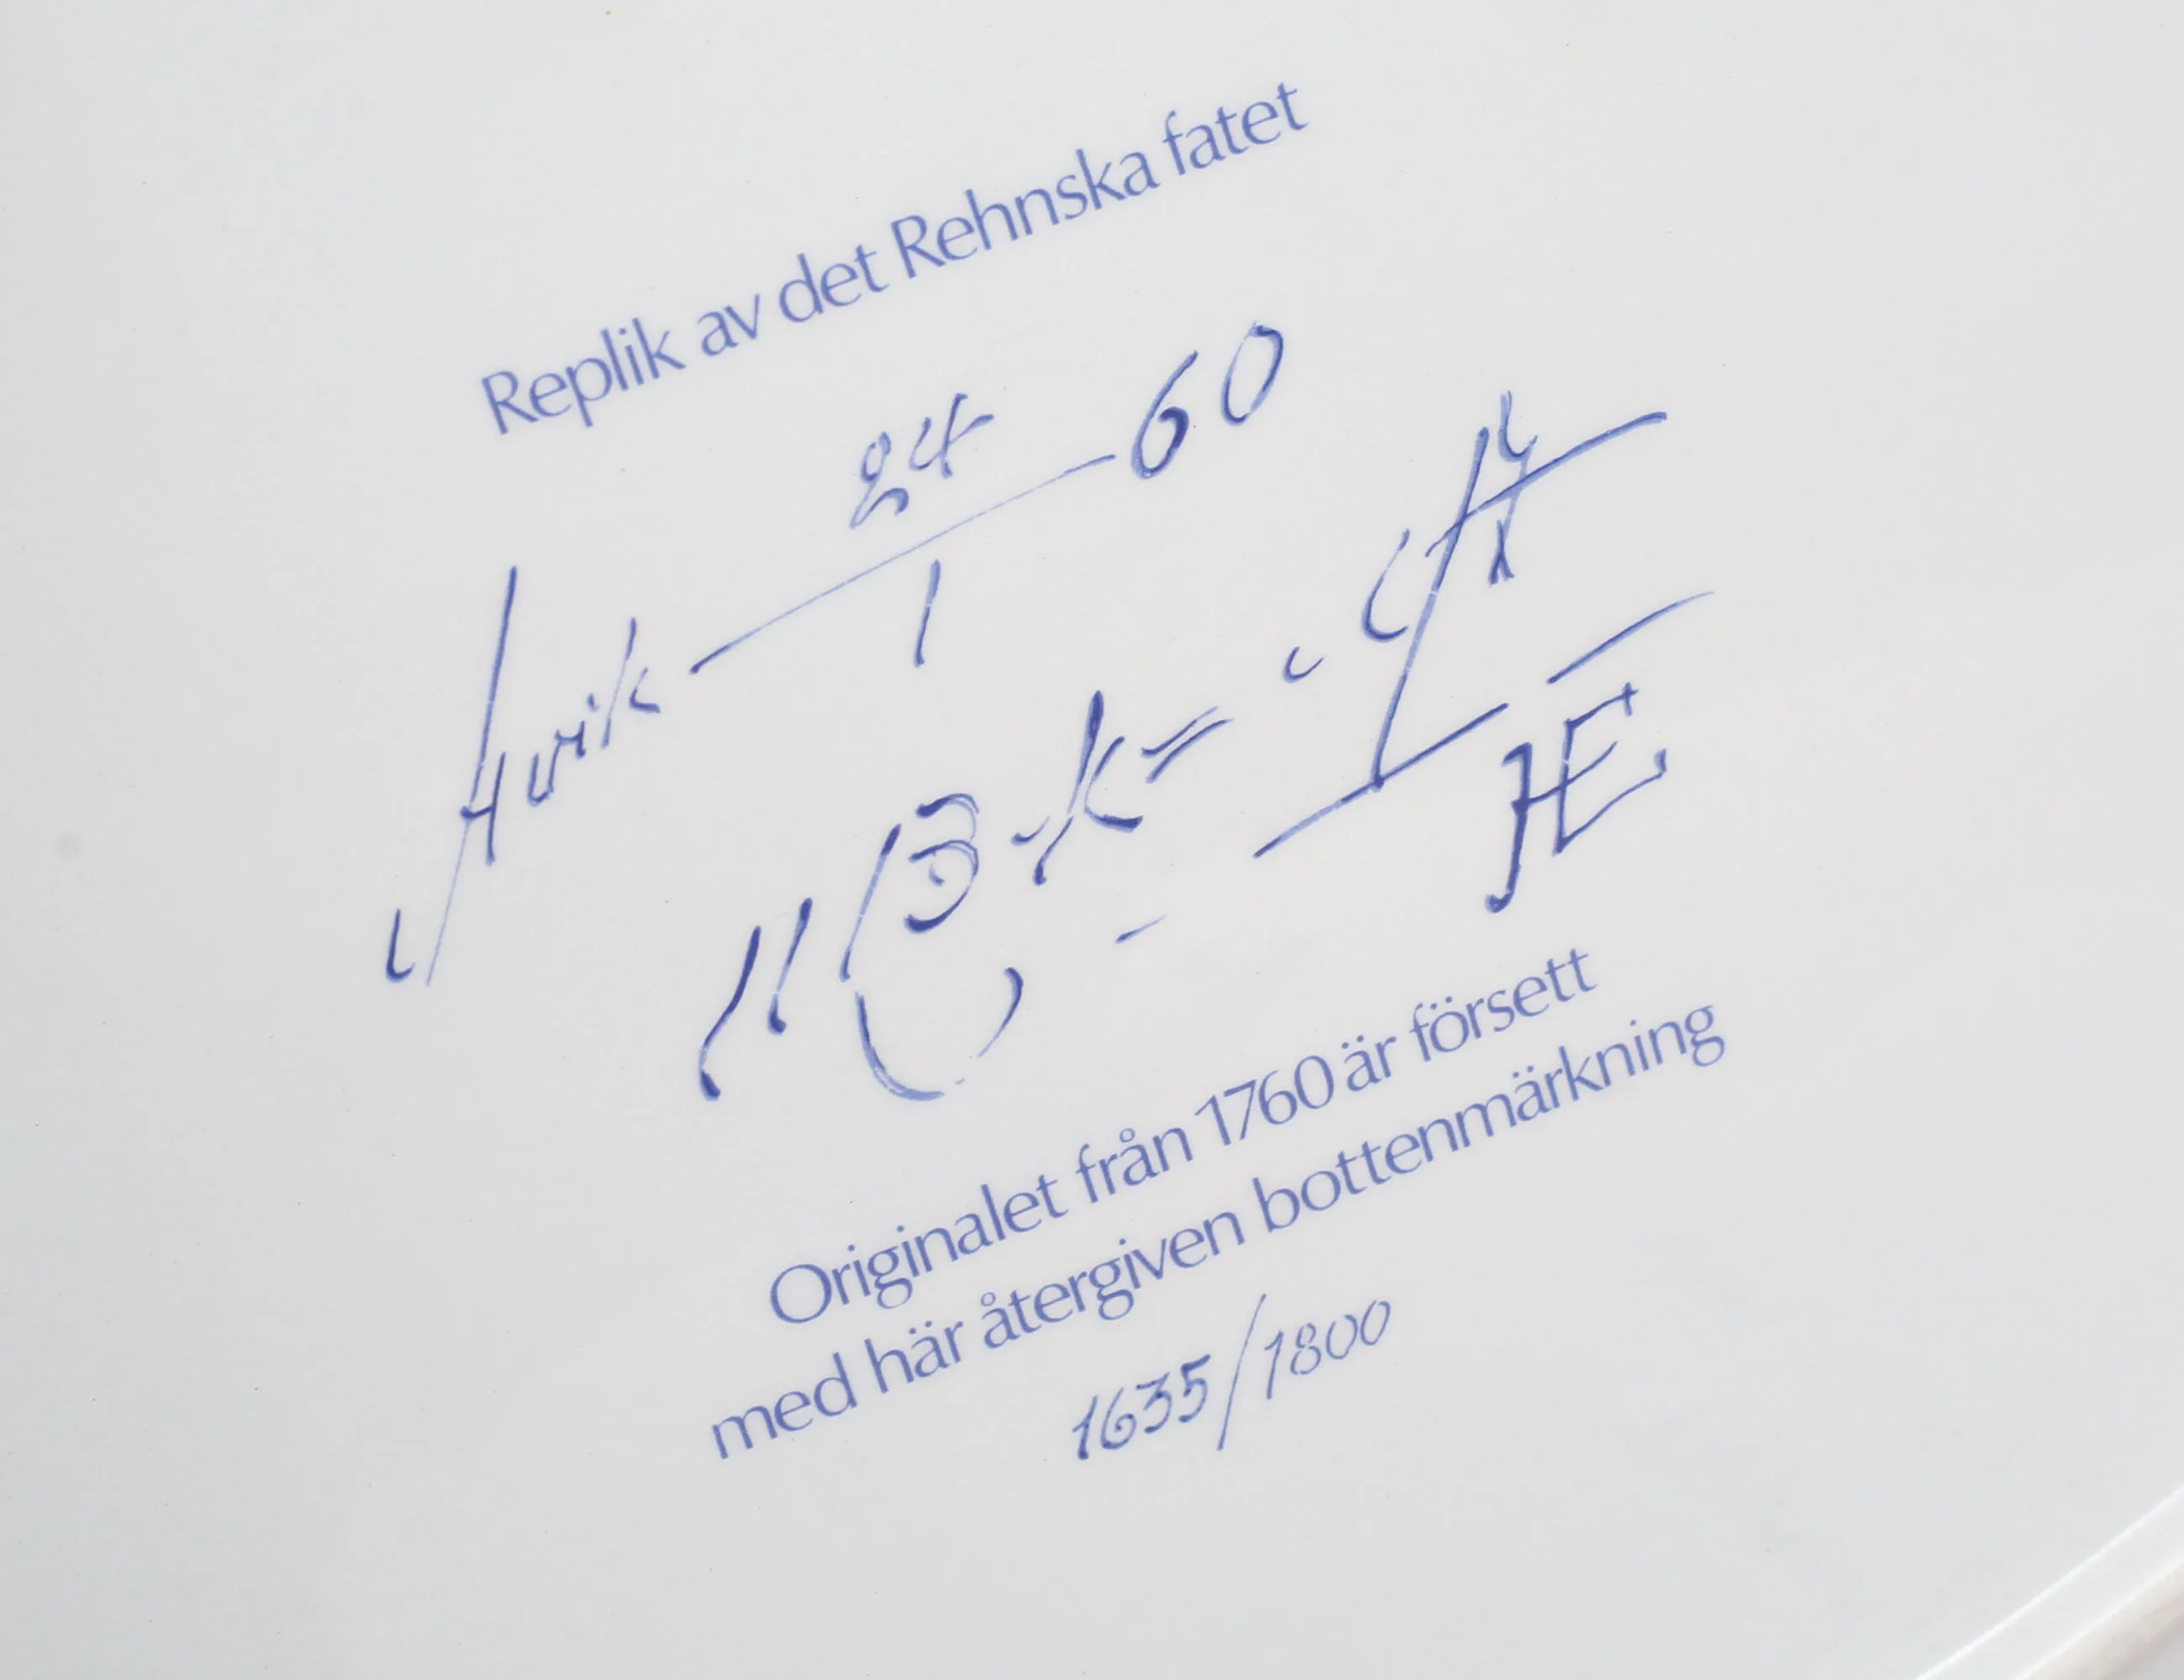 Replik av det Rehnska fatet
24
60
1
Originalet från 1760 är försett
med här återgiven bottenmärkning
1635/1800